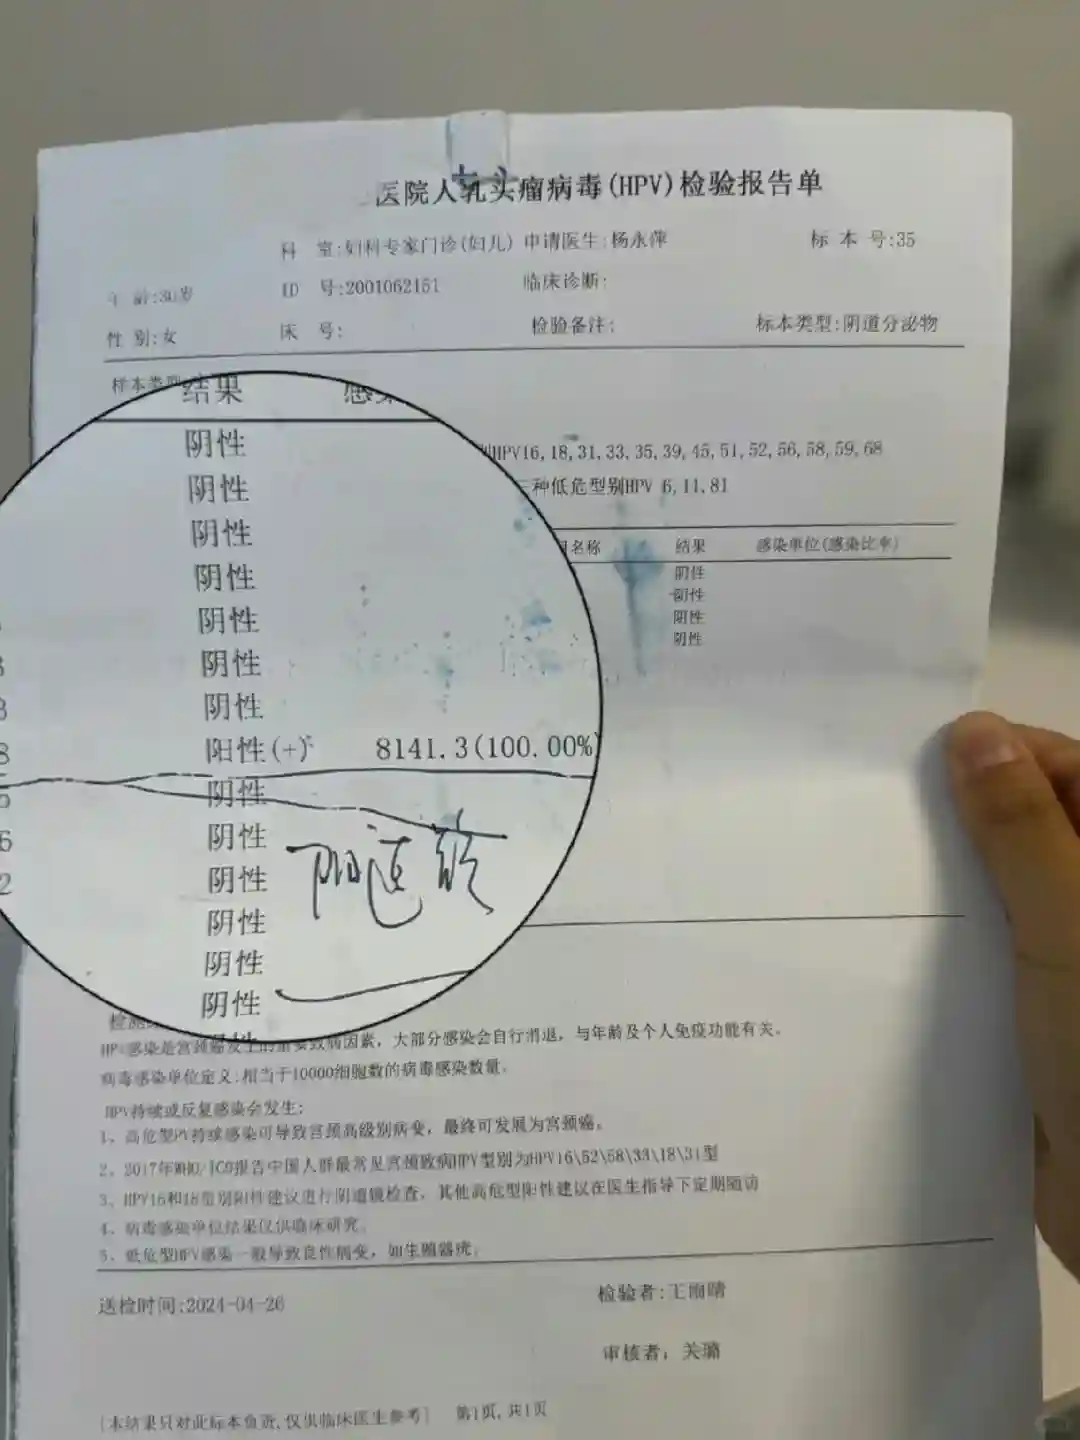 医院人乳头瘤病毒(HPV)检验报告单
科 室:妇科专家门诊(妇儿) 申请医生:杨永萍 标 本 号:35
年 龄:30岁 ID 号:2001062151 临床诊断:
性 别:女 床 号: 检验备注: 标本类型:阴道分泌物
样本类型
HPV16,18,31,33,35,39,45,51,52,56,58,59,68
三种低危型别HPV 6,11,81
名称 结果 感染单位(感染比率)
阴性
阴性
阴性
阴性
结果
阴性
阴性
阴性
阴性
阴性
3 阴性
3 阴性
8 阳性(+) 8141.3(100.00%)
5 阴性
6 阴性
2 阴性
阴性
阴性
阴性
阴道镜
HPV感染是宫颈癌发生的重要致病因素，大部分感染会自行消退，与年龄及个人免疫功能有关。
病毒感染单位定义:相当于10000细胞数的病毒感染数量。
HPV持续或反复感染会发生:
1、高危型PV持续感染可导致宫颈高级别病变，最终可发展为宫颈癌。
2、2017年WHO/ICO报告中国人群最常见宫颈致病HPV型别为HPV16\52\58\33\18\31型
3、HPV16和18型别阳性建议进行阴道镜检查，其他高危型阳性建议在医生指导下定期随访
4、病毒感染单位结果仅供临床研究。
5、低危型HPV感染一般导致良性病变，如生殖器疣。
送检时间:2024-04-26 检验者:王雨晴
审核者：关璐
[本结果只对此标本负责,仅供临床医生参考] 第1页,共1页